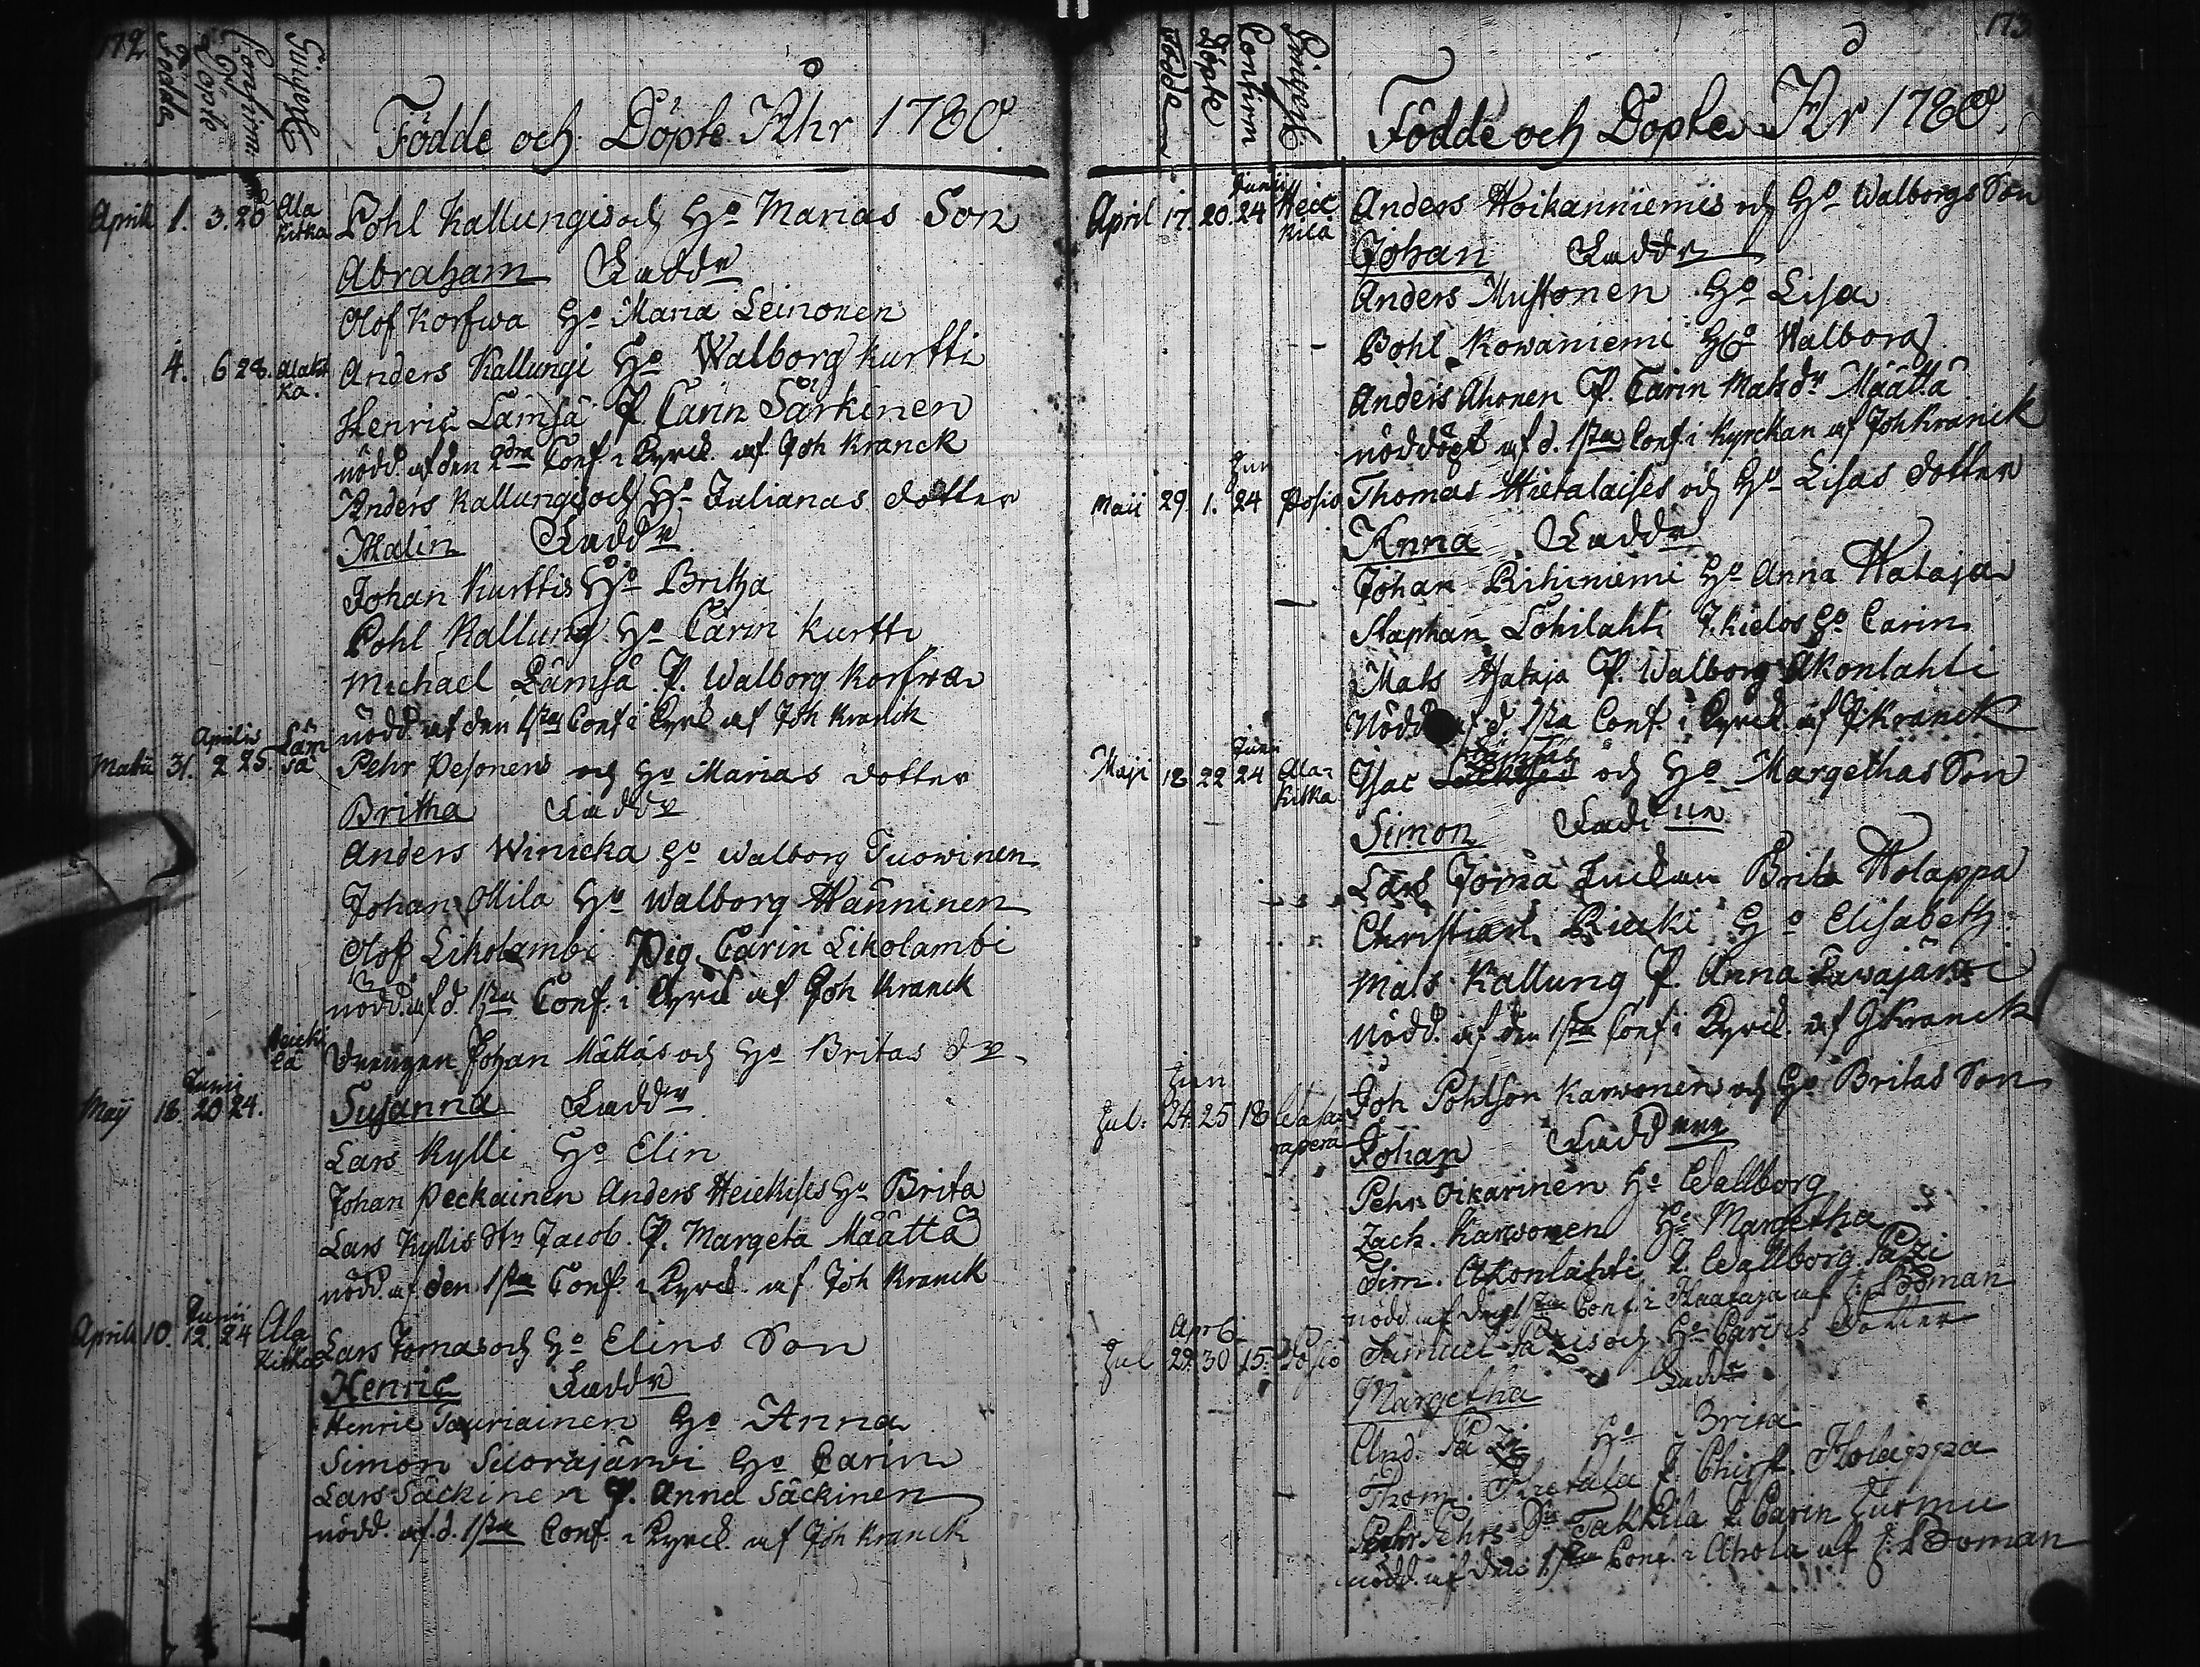 172.
Födde
Döpte
Confirm.
Bÿgesl
Födde och Döpte Åhr 1780.
Aprili 1. 3. 20 Ala Kitka Pohl Kallungis och Ho Marias Son
Abraham Faddr
Olof Korfwa Ho Maria Leinonen
4. 6 28. Alakit ka. Anders Kallungi Ho Walborg Kurtti
Henric Lämsä P. Carin Särkinen
nödd. af den 2dra Conf. i Kyrck. af Joh Kranck
Anders Kallungis och Ho Julianas dotter
Malin Faddr
Johan Kurttis Ho Britha
Pohl Kallung Ho Carin Kurtti
Michael Lämsä P. Walborg Korfwa
nödd. af den 1sta Conf i Kyrck af Joh Kranck
Martii 31. Aprilis 2 25. Läm sä Pehr Pesonens och Ho Marias dotter
Britha Faddr
Anders Winicka Ho Walborg Tuowinen
Johan Mila Ho Walborg Hänninen
Olof Likolambi Pig. Carin Likolambi
nödd. af d. 1sta Conf. i Kyrck af Joh Kranck
Heicki lä Drengen Johan Mättäs och Ho Britas dr
Maij 18. Junii 20 24. Susanna Faddr
Lars Kylli Ho Elin
Johan Peckainen Anders Heickises Ho Brita
Lars Kyllis Sn Jacob P. Margeta Määttä
nödd. af den 1sta Conf. i Kyrck af Joh Kranck
Aprili 10. Junii 12. 24 Ala Kitka Lars Jomas och Ho Elins Son
Henric Faddr
Henric Tauriainen Ho Anna
Simon Suorajärwi Ho Carin
Lars Säckinen P. Anna Säckinen
nödd. af d. 1sta Conf. i Kyrck. af Joh Kranck
173
Födde
Döpte
Confirm
Födde och Döpte År 1780
April 17. 20. Junii 24 Heic kilä Anders Hoikanniemis och Ho Walborgs Son
Johan Faddr
Anders Mustonen Ho Lisa
Pohl Kowaniemi Ho Walborg
Anders Ahonen P. Carin Matsdr Määttä
nöddöpt af d. 1sta Conf i Kyrckan af Joh Kranck
Maii 29. 1. Jun 24 Posio Thomas Hietalaises och Ho Lisas dotter
Anna Faddr
Johan Rihiniemi Ho Anna Hataja
Staphan Lohilahti Ho Carin
Mats Hataja P. Walborg Akonlahti
Nödd af d. 1sta Conf. i Kyrck. af J Kranck
Maji 18 22 Junii 24 Ala Kitka Isac Lämsäs och Ho Margethas Son
Simon Faddrar
Lars Joma Brita Holappa
Christian Riecki Ho Elisabeth
Mats Kallung P. Anna Lawajärwi
Nödd. af den 1sta Conf i Kyrck. af J Kranck
Jul. 24. Jun 25 18 Joh Pohlson Karwonens och Ho Britas Son
Johan Faddrar
Pehr Oikarinen Ho Wallborg
Zach. Karwonen Ho Margetha
Sim. Akonlahti P. Wallborg Pätzi
nödd. af Conf. i Haataja af J. Boman
Jul 29. 30 15. Posio Samuel Pätzis och Ho Carins Dotter
Margetha Faddr
And. Pätzi Ho Brita
Thom. Hietala P. Christ. Holappa
Pehr Pehrs Sn Takkila P. Carin Jurmu
nödd. af den 1sta Conf. i Ahola af J. Boman